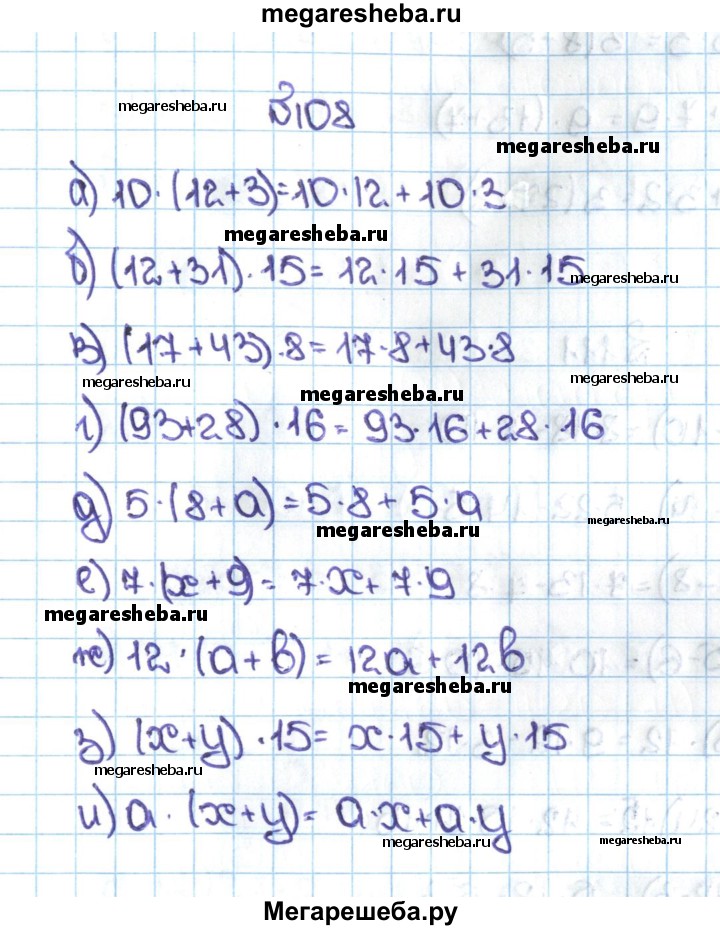 megaresheba.ru
megaresheba.ru №108
megaresheba.ru
а) 10·(12+3)=10·12+10·3
megaresheba.ru
б) (12+31)·15=12·15+31·15
megaresheba.ru
в) (17+43)·8=17·8+43·8
megaresheba.ru megaresheba.ru
megaresheba.ru
г) (93+28)·16=93·16+28·16
д) 5·(8+a)=5·8+5·a
megaresheba.ru megaresheba.ru
е) 7·(x+9)=7·x+7·9
megaresheba.ru
ж) 12·(a+b)=12a+12b
megaresheba.ru
з) (x+y)·15=x·15+y·15
megaresheba.ru
и) a·(x+y)=a·x+a·y
megaresheba.ru megaresheba.ru
Мегарешеба.ру